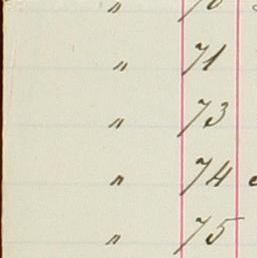 " 71
" 73
" 74
" 75